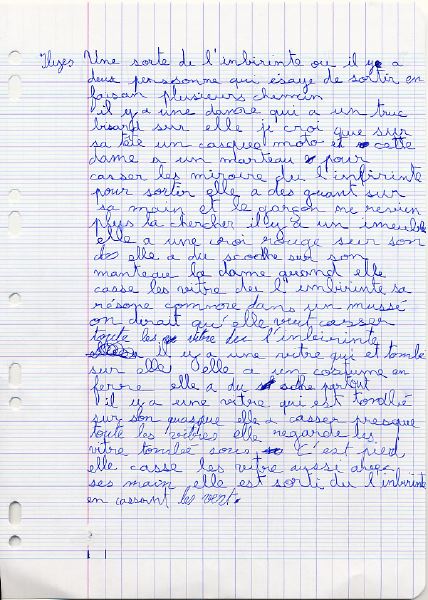 Ilyes Une sorte de l'inbirinte ou il y a
deux personne qui esaye de sortir en
faisan plusieurs chemin
il y a une dame qui a un truc
bisard sur elle je croi que sur
sa tête un casque moto et cette
dame a un marteau pour
casser les miroire du l'infirinte
pour sortir elle a des guant sur
sa main et le garçon ne revien
plus la chercher il y a un imeuble
elle a une croi rouge sur son
dos elle a du scoche sur son
manteaue la dame quand elle
casse les vitre deu l'inbirinte sa
résone comme dans un mussé
on dirait qu'elle veut casser
toute les vitre deu l'inbirinte
il y a une vitre qui et tombé
sur elle elle a un costume en
ferre elle a du sche partout
il y a une vitre qui est tombé
sur son quasque elle a casser presque
toute les vitres elle regarde les
vitre tombée sous c'est pied
elle casse les vitre aussi avec
ses main elle est sorti du l'inbirinte
en cassant les vert.